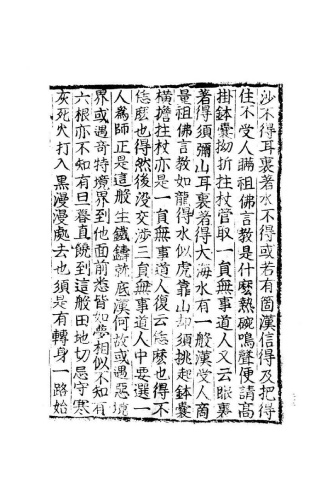 沙不得耳裏著水不得或若有箇漢信得及把得
住不受人瞞祖佛言教是什麼熱碗鳴聲便請高
掛鉢囊拗折拄杖管取一員無事道人又云眼裏
著得須彌山耳裏著得大海水有一般漢受人商
量祖佛言教如龍得水似虎靠山却須挑起鉢囊
橫擔拄杖亦是一員無事道人復云恁麼也得不
恁麼也得然後沒交涉三員無事道人中要選一
人為師正是這般生鐵鑄就底漢何故或遇惡境
界或遇奇特境界到他面前悉皆如夢相似不知有
六根亦不知有旦暮直饒到這般田地切忌守寒
灰死火打入黑漫漫處去也須是有轉身一路始